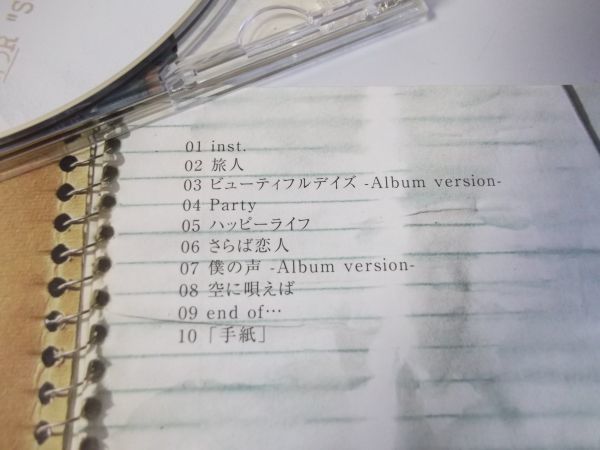 01 inst.
02 旅人
03 ビューティフルデイズ -Album version-
04 Party
05 ハッピーライフ
06 さらば恋人
07 僕の声 -Album version-
08 空に唄えば
09 end of…
10 「手紙」